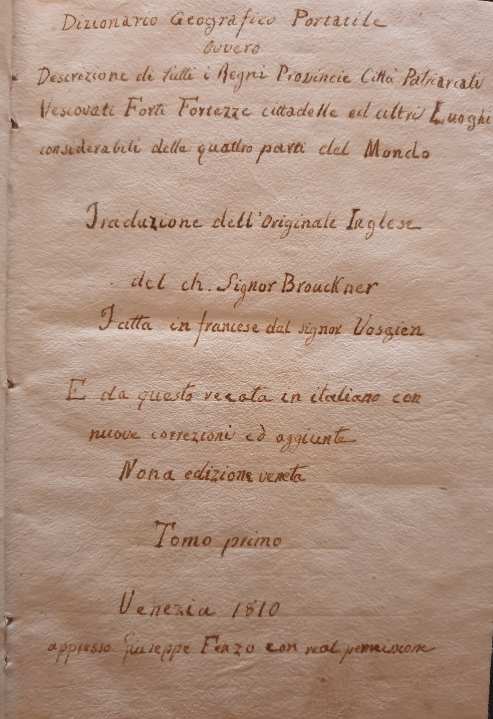 Dizionario Geografico Portatile
Ovvero
Descrizione di tutti i Regni Provincie Città Patriarcali
Vescovati Forti Fortezze cittadelle ed altri Luoghi
considerabili delle quattro parti del Mondo
Traduzione dell'Originale Inglese
del ch. Signor Brouckner
Fatta in francese dal signor Vosgien
E da questo recata in italiano con
nuove correzioni ed aggiunte
Nona edizione veneta
Tomo primo
Venezia 1810
appresso Giuseppe Fenzo con real permissione